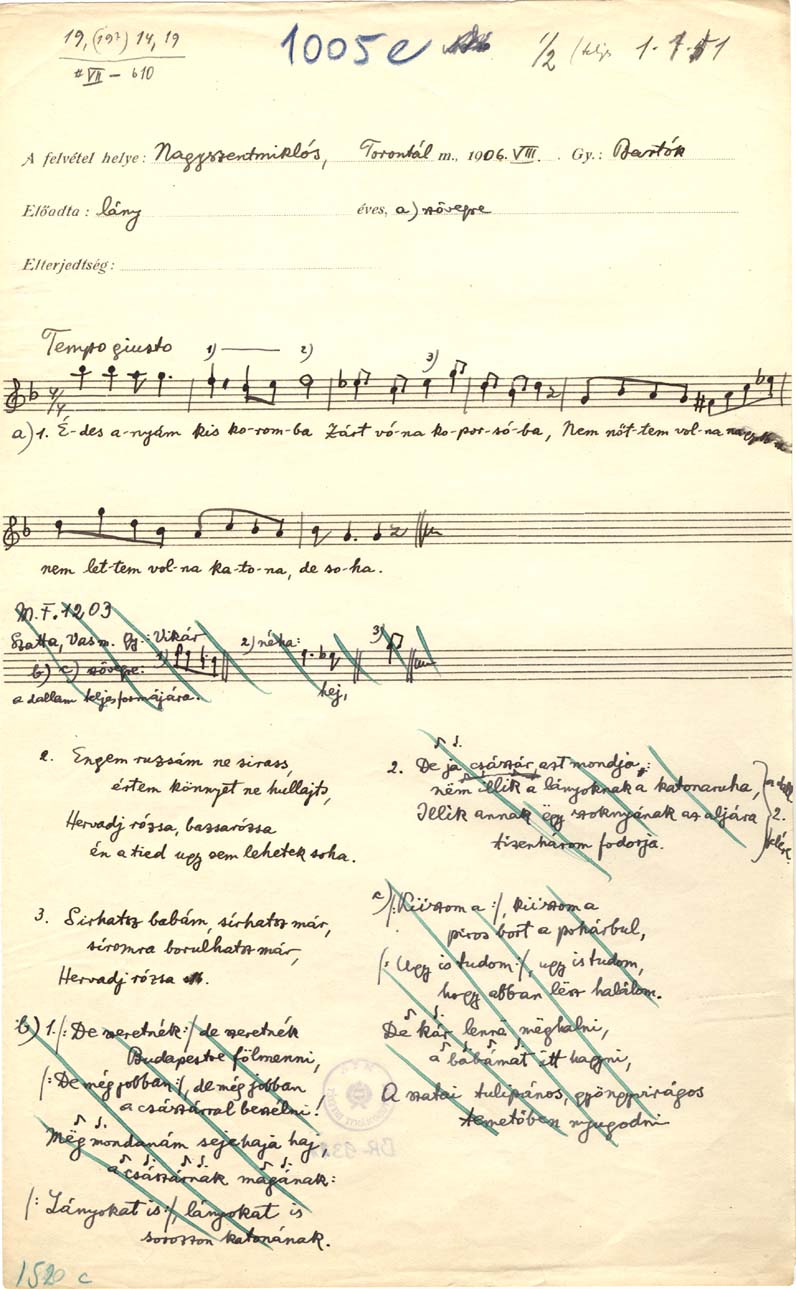 19, (19?) 14, 19
VII – 610
1005e
1/2
A felvétel helye: Nagyszentmiklós, Torontál m., 1906. VIII. Gy.: Bartók
Előadta: lány éves, a) szövegre
Elterjedtség:
Tempo giusto 1) 2) 3)
a) 1. É-des a-nyám kis ko-rom-ba Zárt vó-na ko-por-só-ba, Nem nőt-tem vol-na
nem let-tem vol-na ka-to-na, de so-ha.
M.F. 1203
Szatta, Vas m. Gy.: Vikár 2) néha: 3)
b) c) szövegre: 1)
a dallam teljes formájára. hej,
2. Engem ruzsám ne sirass,
értem könnyet ne hullajts,
Hervadj rózsa, bazsarózsa
én a tied ugy sem lehetek soha.
3. Sirhatsz babám, sírhatsz már,
síromra borulhatsz már,
Hervadj rózsa stb.
b) 1. /: De szeretnék :/ de szeretnék
Budapestre fölmenni,
/: De még jobban :/, de még jobban
a császárral beszélni!
Még mondanám sejehaja haj,
a császárnak magának:
/: Lányokat is :/, lányokat is
sorozzon katonának.
2. De ja császár azt mondja:
nëm illik a lányoknak a katonaruha,
Illik annak ëgy szoknyának az aljára
tizenhárom fodorja.
2.
c) /: Kiiszom a :/, kiiszom a
piros bort a pohárbul,
/: Ugy is tudom :/, ugy is tudom,
hogy abban lësz halálom.
De kár lenne mëghalni,
a babámat itt hagyni,
A szatai tulipános, gyöngyvirágos
temetőben nyugodni
1520 c